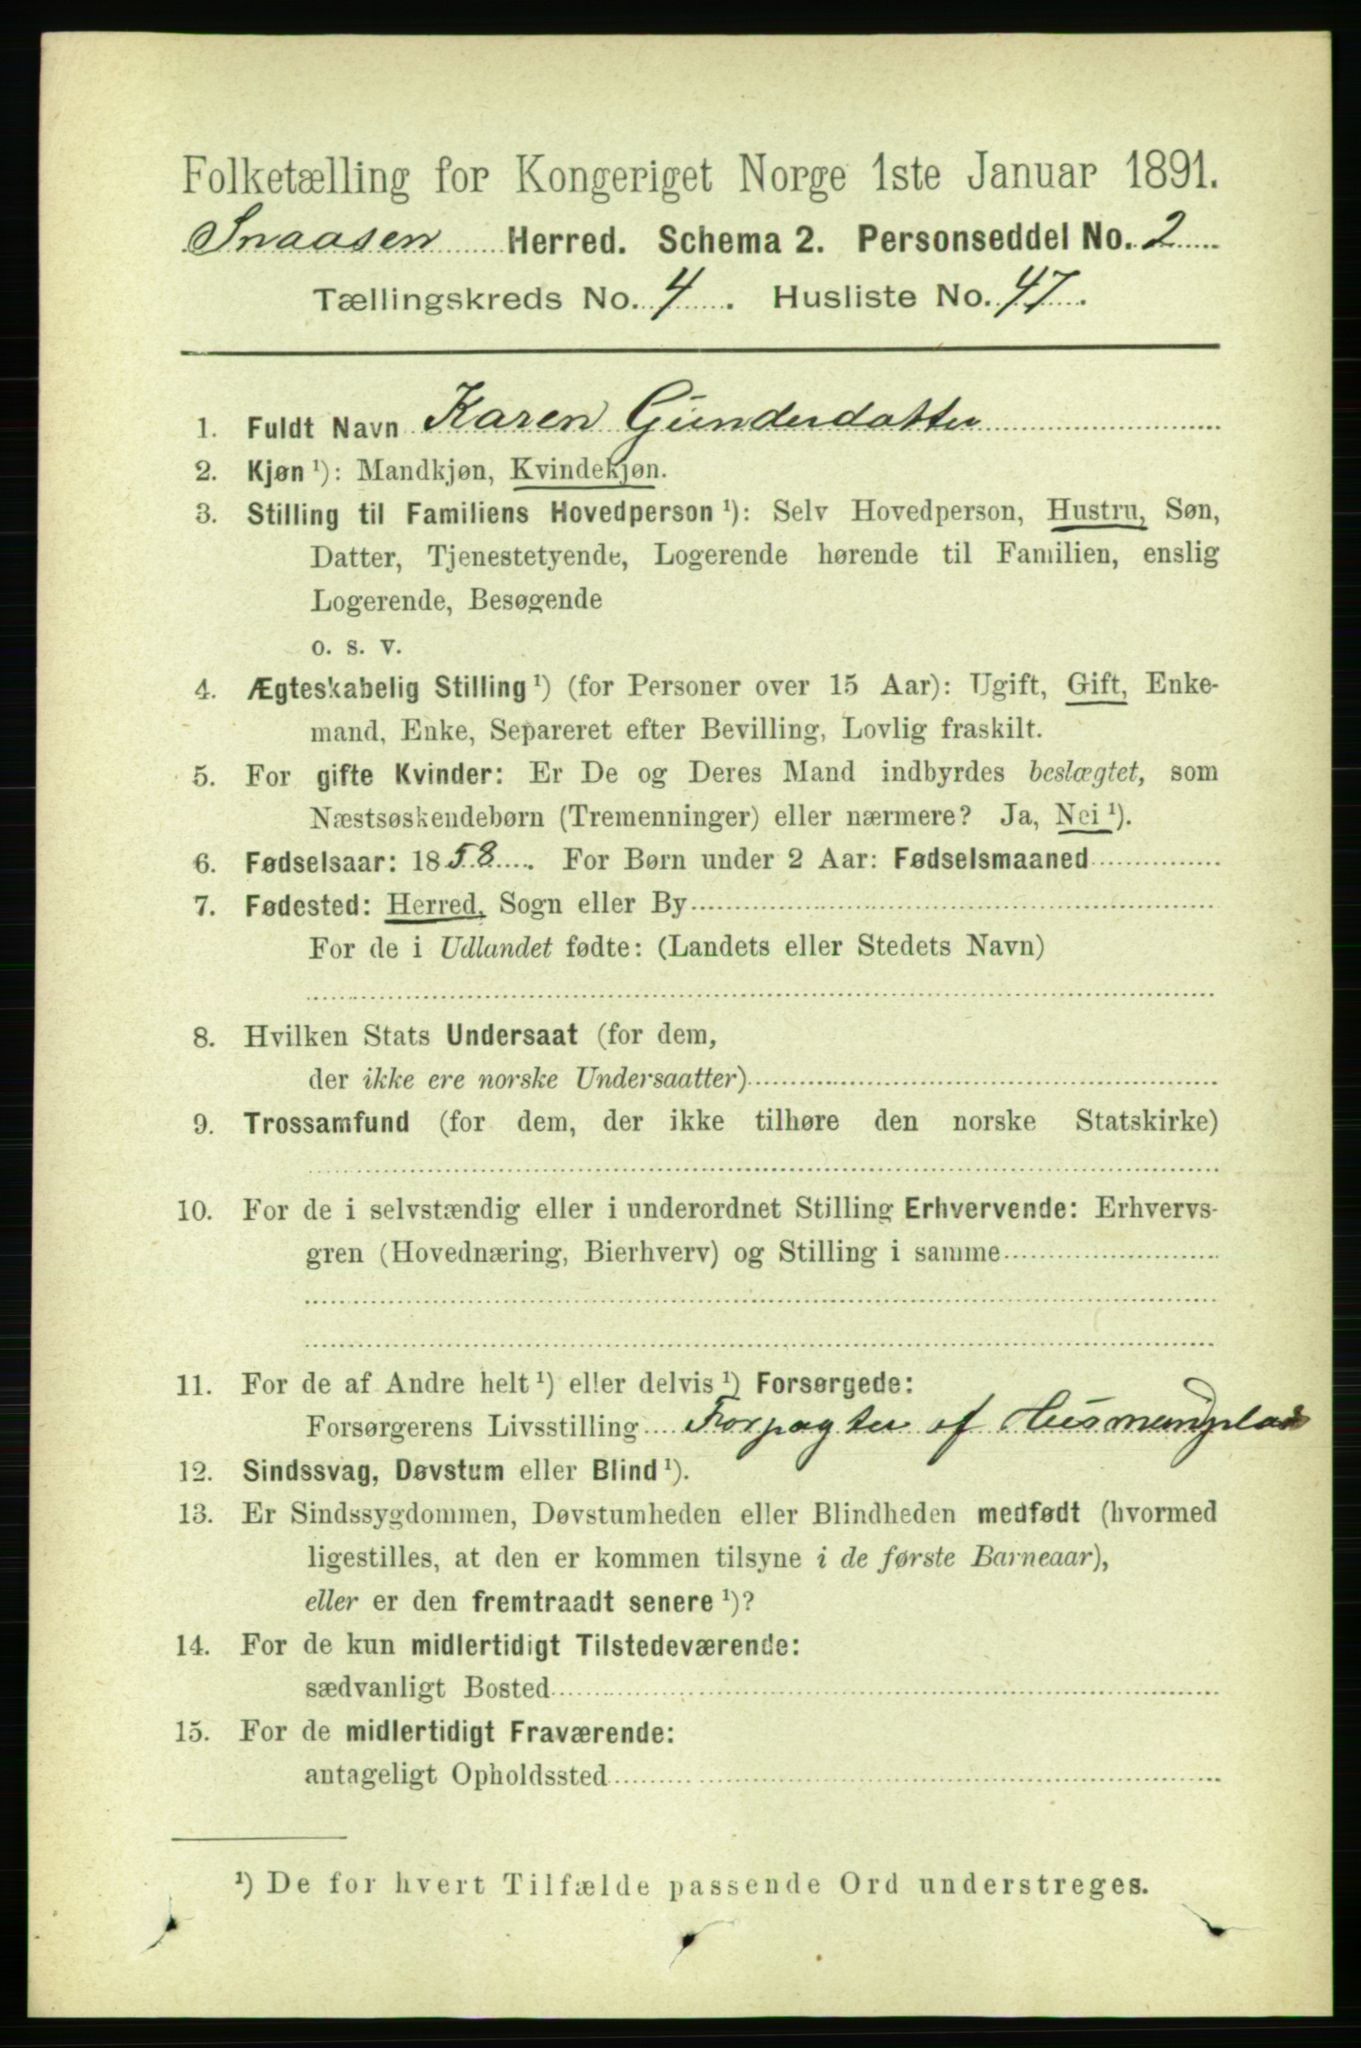 Folketælling for Kongeriget Norge 1ste Januar 1891.
Snaasen Herred. Schema 2. Personseddel No. 2
Tællingskreds No. 4. Husliste No. 47.
1. Fuldt Navn Karen Gunderdatter
2. Kjøn ¹): Mandkjøn, Kvindekjøn.
3. Stilling til Familiens Hovedperson ¹): Selv Hovedperson, Hustru, Søn,
Datter, Tjenestetyende, Logerende hørende til Familien, enslig
Logerende, Besøgende
o. s. v.
4. Ægteskabelig Stilling ¹) (for Personer over 15 Aar): Ugift, Gift, Enke-
mand, Enke, Separeret efter Bevilling, Lovlig fraskilt.
5. For gifte Kvinder: Er De og Deres Mand indbyrdes beslægtet, som
Næstsøskendebørn (Tremenninger) eller nærmere? Ja, Nei ¹).
6. Fødselsaar: 1858. For Børn under 2 Aar: Fødselsmaaned
7. Fødested: Herred, Sogn eller By
For de i Udlandet fødte: (Landets eller Stedets Navn)
8. Hvilken Stats Undersaat (for dem,
der ikke ere norske Undersaatter)
9. Trossamfund (for dem, der ikke tilhøre den norske Statskirke)
10. For de i selvstændig eller i underordnet Stilling Erhvervende: Erhvervs-
gren (Hovednæring, Bierhverv) og Stilling i samme
11. For de af Andre helt ¹) eller delvis ¹) Forsørgede:
Forsørgerens Livsstilling Forpagter af Husmandsplads
12. Sindssvag, Døvstum eller Blind ¹).
13. Er Sindssygdommen, Døvstumheden eller Blindheden medfødt (hvormed
ligestilles, at den er kommen tilsyne i de første Barneaar),
eller er den fremtraadt senere ¹)?
14. For de kun midlertidigt Tilstedeværende:
sædvanligt Bosted
15. For de midlertidigt Fraværende:
antageligt Opholdssted
¹) De for hvert Tilfælde passende Ord understreges.